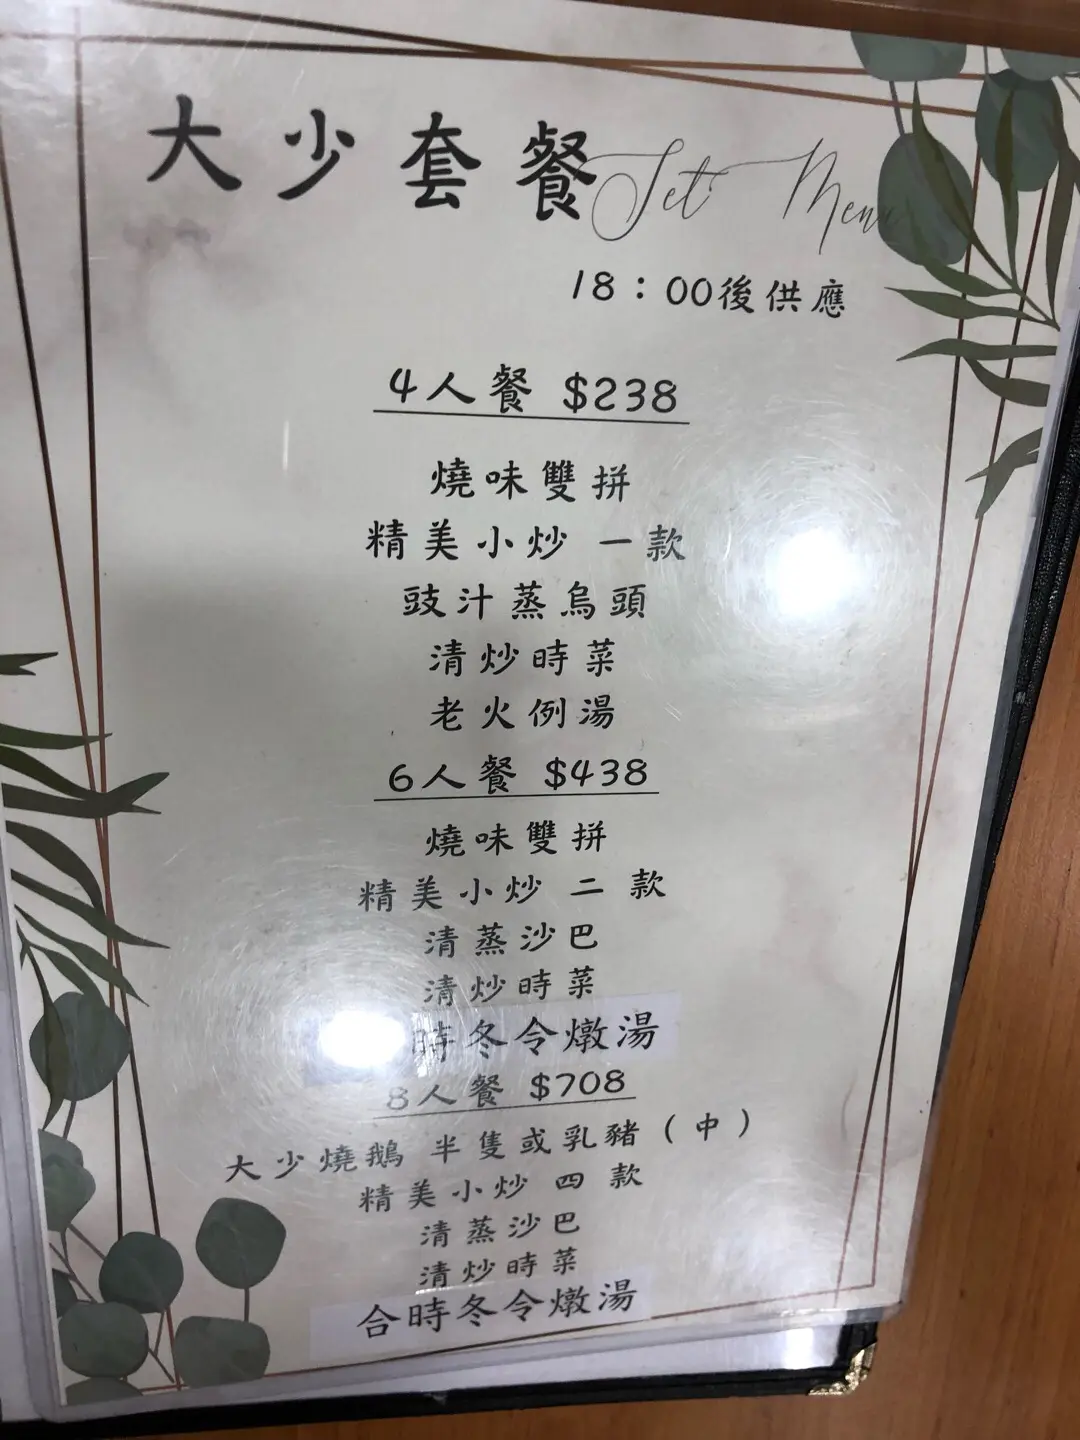 大少套餐 Set Menu
18：00後供應
4人餐 $238
燒味雙拼
精美小炒 一款
豉汁蒸烏頭
清炒時菜
老火例湯
6人餐 $438
燒味雙拼
精美小炒 二 款
清蒸沙巴
清炒時菜
時冬令燉湯
8人餐 $708
大少燒鵝 半隻或乳豬（中）
精美小炒 四 款
清蒸沙巴
清炒時菜
合時冬令燉湯